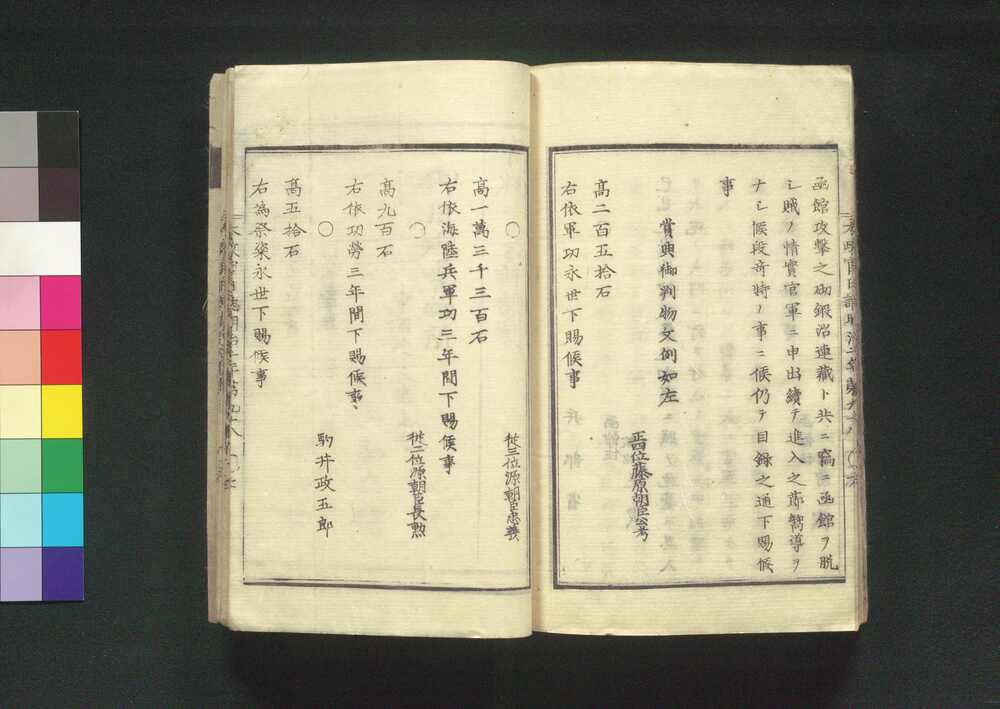 函館攻撃之砌鍜冶連藏ト共ニ竊ニ函館ヲ脱
シ賊ノ情實官軍ニ申出續テ進入之節嚮導ヲ
ナシ候段奇特ノ事ニ候仍テ目録之通下賜候
事
賞典御判物文例如左
正四位藤原朝臣公考
高二百五拾石
右依軍功永世下賜候事
〇
從三位源朝臣忠義
高一萬三千三百石
右依海陸兵軍功三年間下賜候事
〇
從二位源朝臣長勲
高九百石
右依功勞三年間下賜候事、
〇
駒井政五郎
高五拾石
右為祭粢永世下賜候事